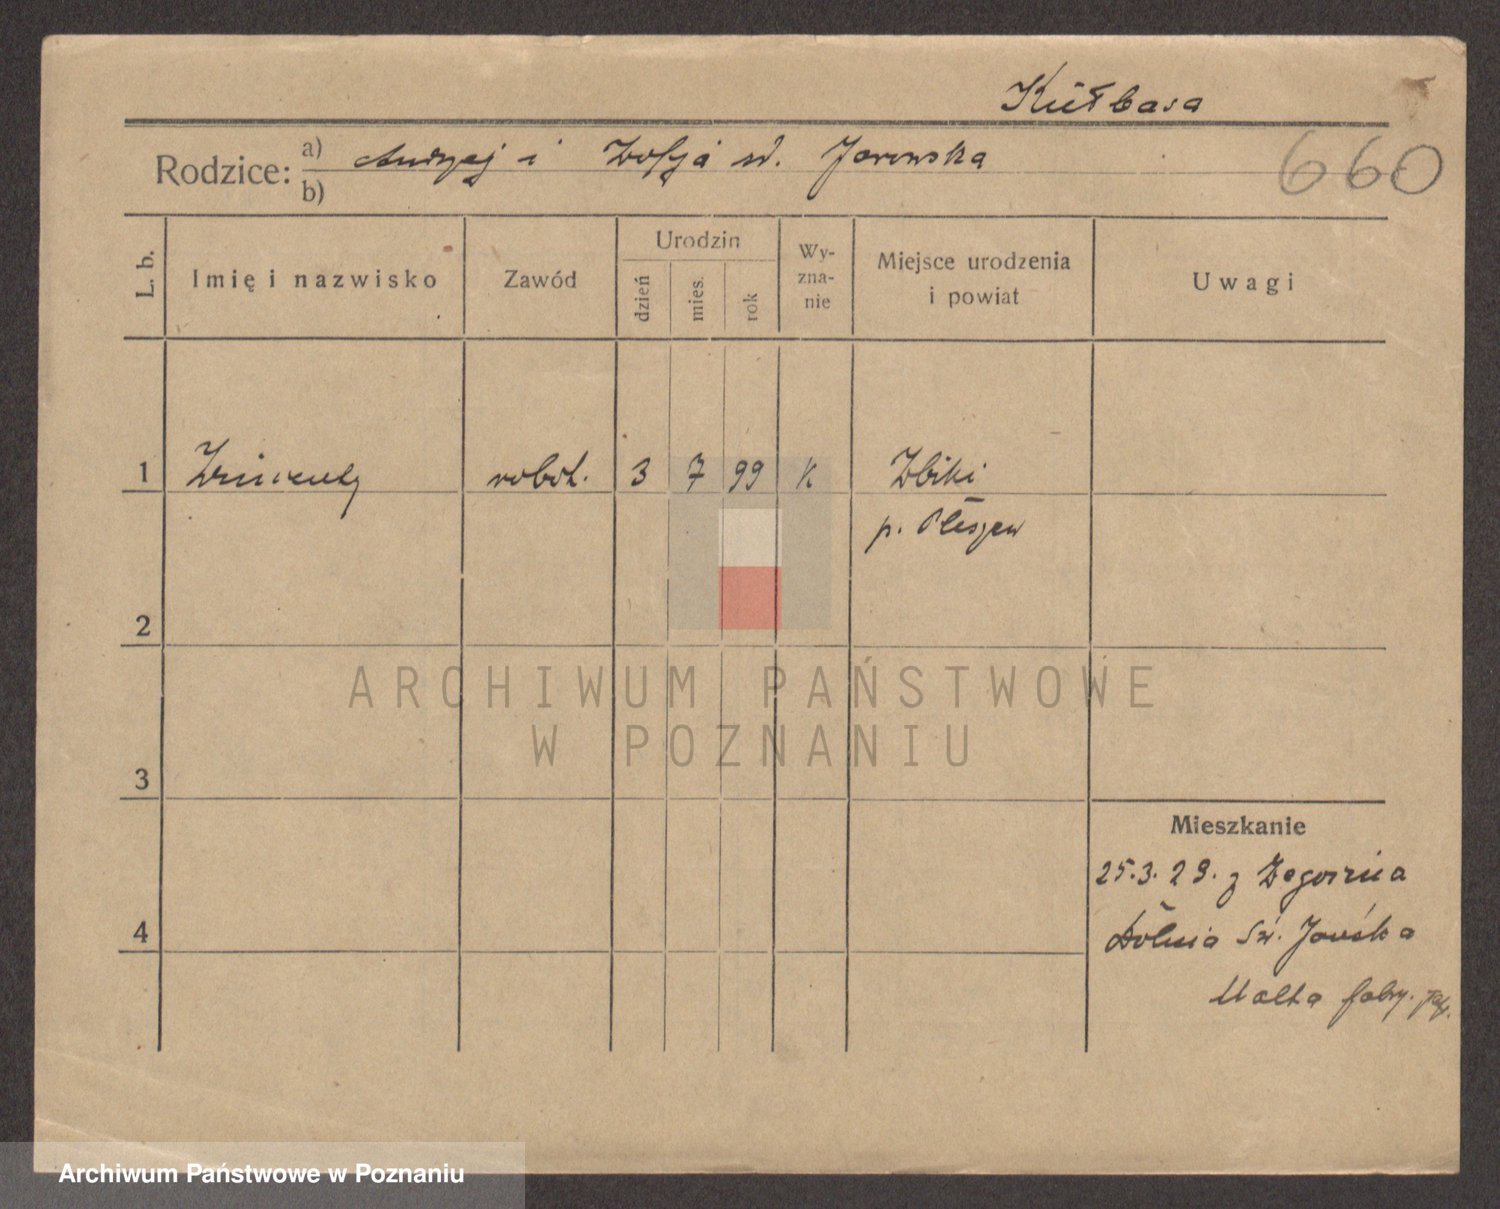 Kułbasa
Rodzice: a) Andrzej i Zofja śl. Jaremska
b)
660
L. b. Imię i nazwisko Zawód Urodzin dzień mies. rok Wy-zna-nie Miejsce urodzenia i powiat Uwagi
1 Wincenty robot. 3 7 99 k Żbiki
p. Pleszew
2
3
4
Mieszkanie
25.3.29. z Zagorzna
Dolnia Św. Jańska
Malta fabry.
ARCHIWUM PAŃSTWOWE
W POZNANIU
Archiwum Państwowe w Poznaniu